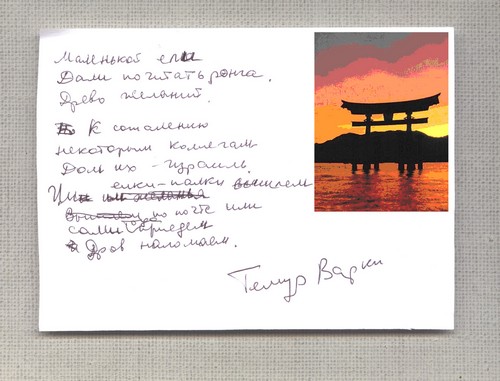 Маленькой ели
Дали почитать ронга.
Древо желаний.
К сожалению
некоторым коллегам
Даль их - Израиль.
елки-палки вышлем
по почте или
сами приедем
Дров наломаем.
Темур Варки